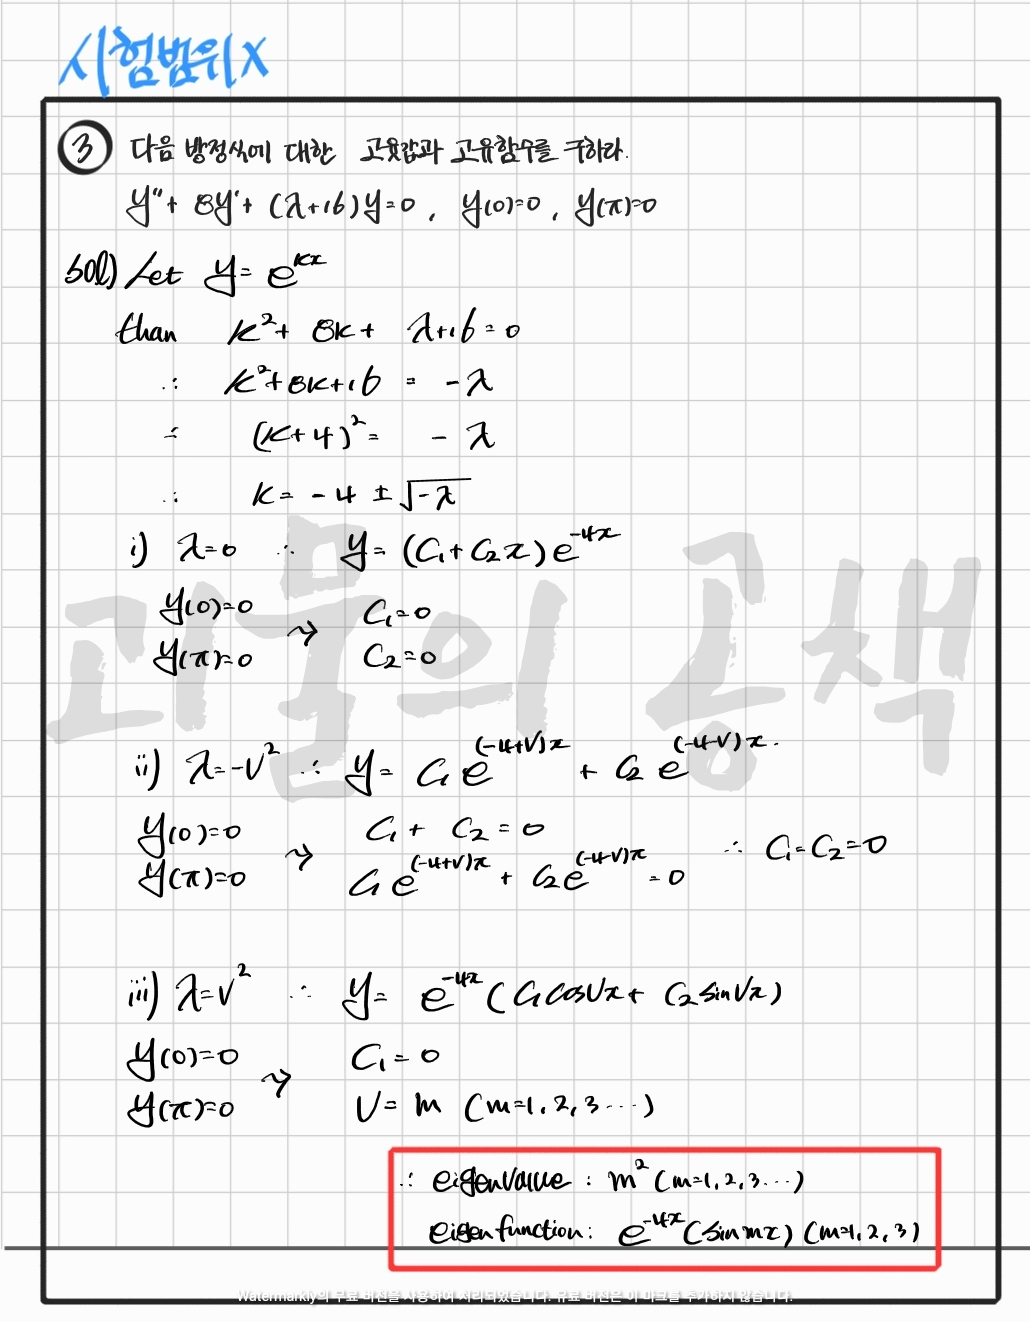 시험범위X
③ 다음 방정식에 대한 고윳값과 고유함수를 구하라.
y''+ 8y'+ (λ+16)y=0, y(0)=0, y(π)=0
sol) Let y= e^{kx}
than k²+ 8k+ λ+16=0
∴ k²+8k+16 = -λ
∴ (k+4)²= -λ
∴ k= -4 ± √-λ
i) λ=0 ∴ y= (C₁+C₂x)e^{-4x}
y(0)=0 → C₁=0
y(π)=0 C₂=0
괴물의 공책
ii) λ=-ν² ∴ y= C₁e^{(-4+ν)x} + C₂e^{(-4-ν)x}.
y(0)=0 → C₁+ C₂=0
y(π)=0 C₁e^{(-4+ν)π} + C₂e^{(-4-ν)π}=0 ∴ C₁=C₂=0
iii) λ=ν² ∴ y= e^{-4x}(C₁cosνx+ C₂sinνx)
y(0)=0 → C₁=0
y(π)=0 ν= m (m=1,2,3···)
∴ eigenvalue : m² (m=1,2,3···)
eigenfunction: e^{-4x}(sinmx) (m=1,2,3)
Watermarkly의 무료 버전을 사용하여 처리되었습니다. 유료 버전은 이 마크를 추가하지 않습니다.